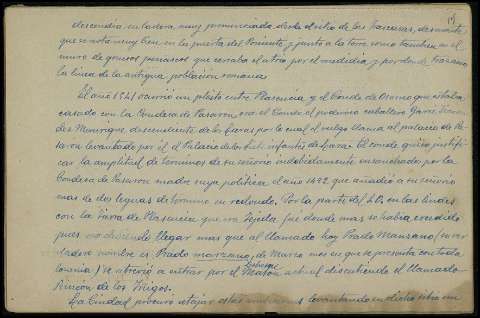 descendia en ladera muy pronunciada desde el sitio de las Barreras, desmonte
que se nota muy bien en la puerta del Poniente y junto a la torre como tambien en el
muro de gruesos peñascos que cerraba el atrio por el mediodia y por donde
la linea de la antigua poblacion romana
El año 1521 ocurrió un pleito entre Plasencia y el Conde de Osorno que estaba
casado con la Condesa de Pasaron, era el Conde el poderoso caballero Garci
dez Manrique, descendiente de los Laras por lo cual el vulgo llama al palacio de Pa-
saron levantado por él el Palacio de los Siete infantes de Lara. El conde quiso justifi-
car la amplitud de terminos de su señorio indebidamente ensanchado por la
Condesa de Pasaron madre suya politica el año 1492 que añadió a su señorio
mas de dos leguas de termino en redondo. Por la parte del O. en las lindes
con la tierra de Plasencia que era Tejeda fue donde mas se habia excedido
pues no debiendo llegar mas que al llamado hoy Prado Manzano (su ver-
dadero nombre es Prado marzano, de Marzo mes en que se presenta con toda
lozania) se atrevió a entrar por el actual descubriendo el llamado
Rincón de los Trigos.
La Ciudad procuró atajar estas ambiciones levantando en dicho sitio un